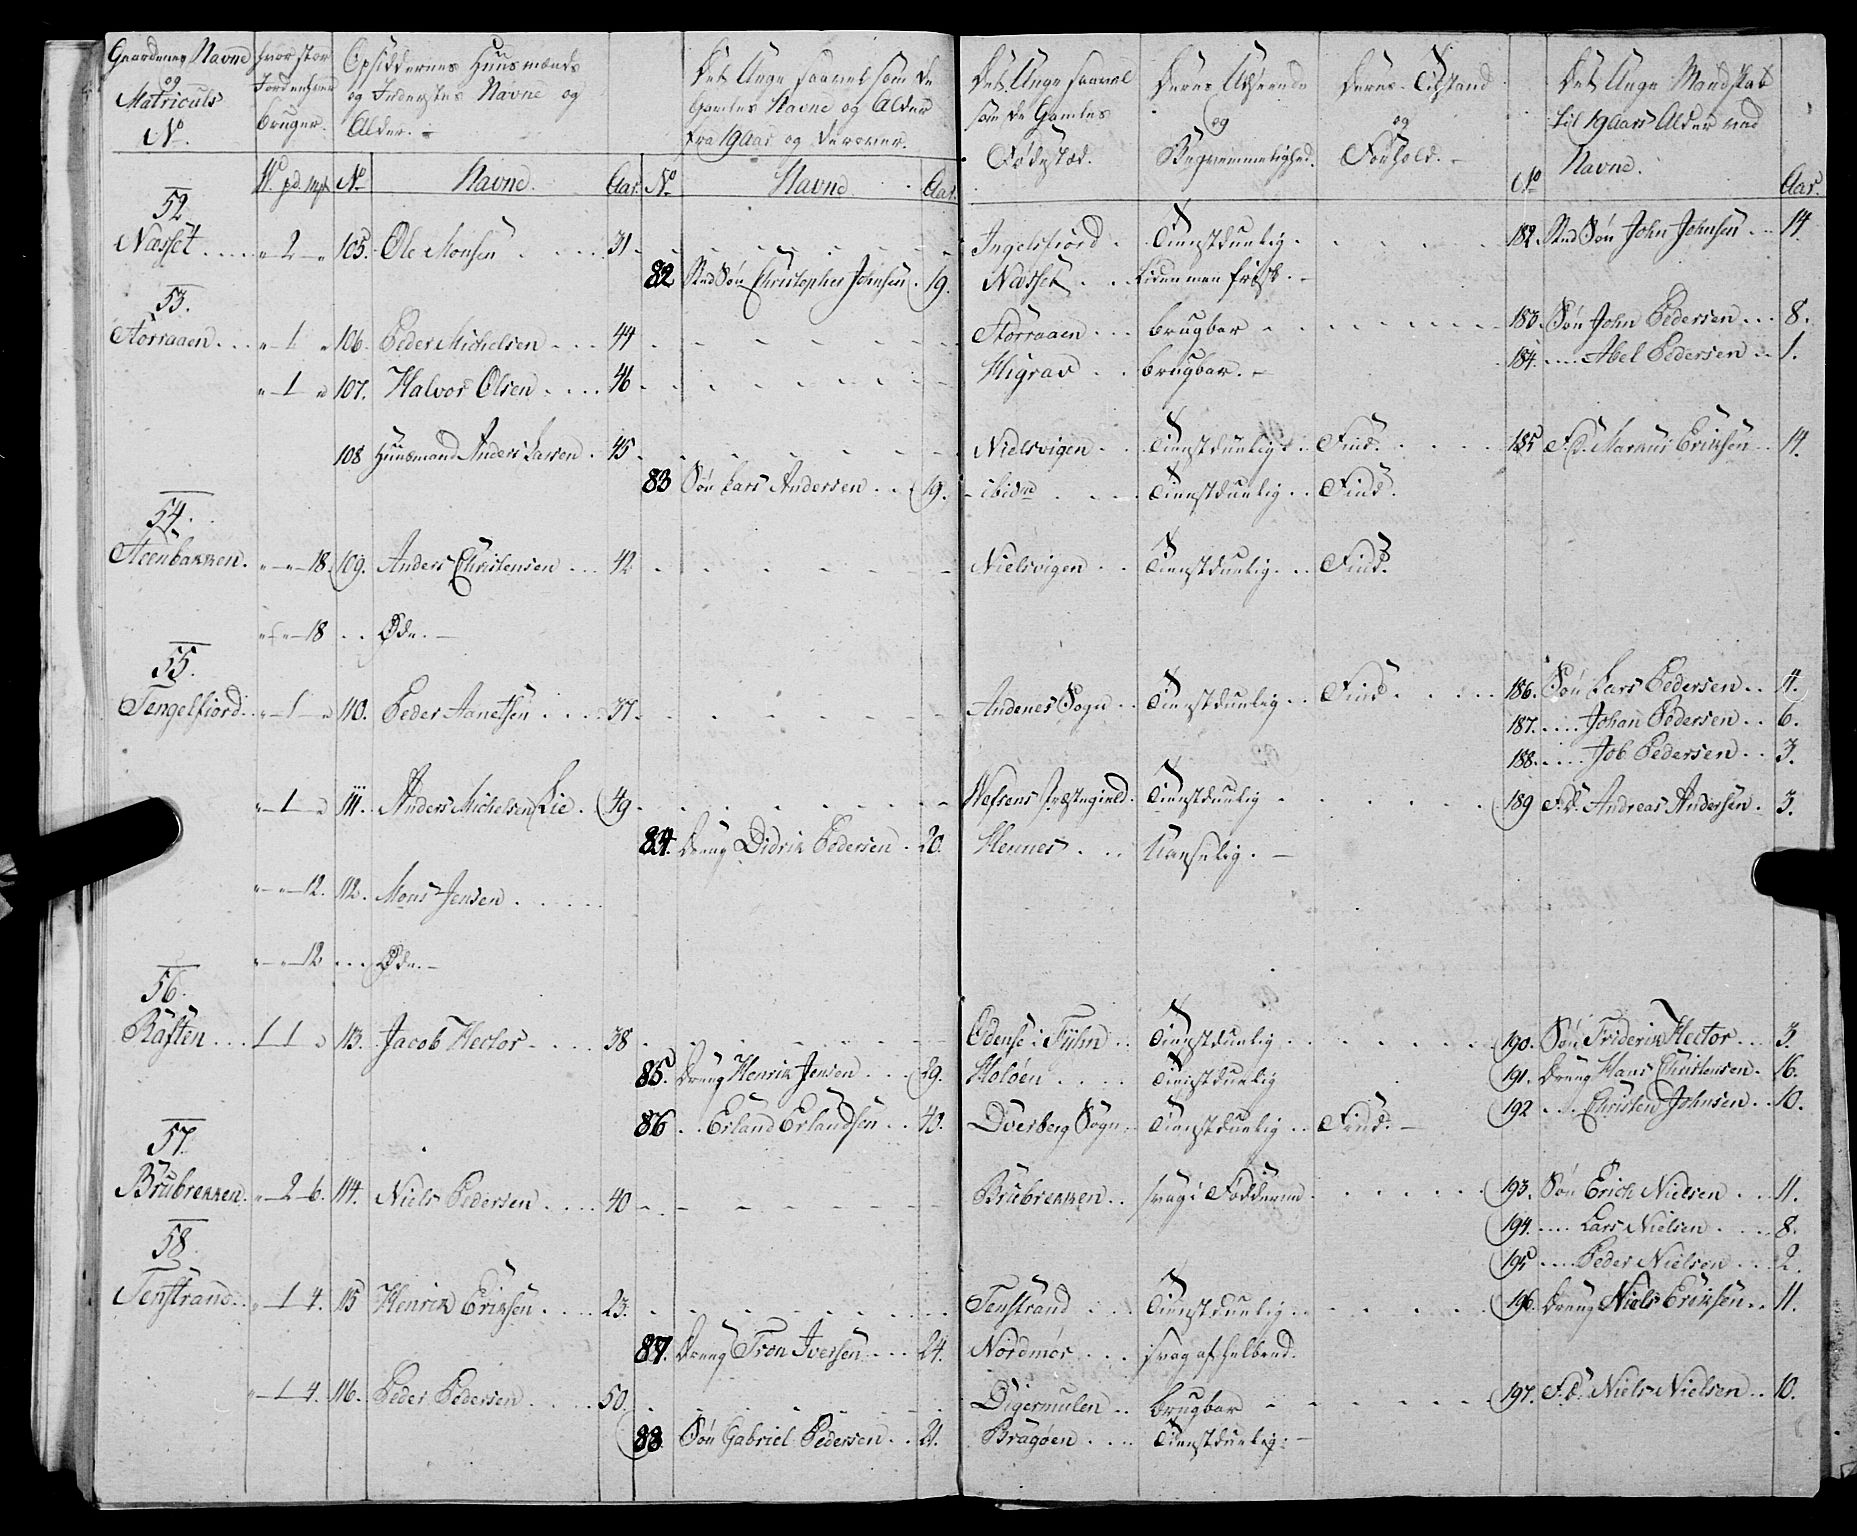 Gaardenes Navne og Matriculs No.
hvor stor Jordenhver bruger.
Opsiddernes Huusmænds og Inderstes Navne og Alder.
Det Unge saavel som de Gamles Navne og Alder fra 19 Aar og derover.
Det Unge saavel som de Gamles Fødested.
Deres Udseende og Beqvemmelighed.
Deres Tilstand og Forhold.
Det Unge Mandskab til 19 Aars Alder ved Navne.
W. pd. mk. No Navne. Aar. No Navne. Aar. No Aar.
52.
Næsset " 2 " 105. Ole Monsen 31 Ingelsfiord Tienstduelig. 182. Sted Søn John Johnsen 14.
82 Sted Søn Christopher Johnsen 19. Næsset liden men frisk.
53.
Storraaen " 1 " 106. Peder Michelsen 44 Storraaen brugbar 183. Søn John Pedersen 8.
184. Abel Pedersen 1.
" 1 " 107. Halvor Olsen 46 Higrav brugbar.
108 Huusmand Anders Larsen 45 Nielsvigen Tienstduelig Find. 185 F.S. Markus Eriksen 14.
83 Søn Lars Andersen 19. ibidm Tienstduelig Find.
54.
Steenbakken. " " 18. 109. Anders Christensen 42 Nielsvigen Tienstduelig Find.
" " 18 Øde.
55.
Tengelfiord " 1 " 110. Peder Aanetsen 37 Andenes Sogn Tienstduelig Find. 186. Søn Lars Pedersen 4.
187. Johan Pedersen 6.
188. Job Pedersen 3.
" 1 " 111. Anders Michelsen Lie 49 Wefsens Præstegield. Tienstduelig 189 F.S. Andreas Andersen 3.
84. Dreng Didrik Pedersen 20. Hennes Uanselig.
" " 12. 112. Mons Jensen
" " 12 Øde.
56.
Raften 1 1 " 113. Jacob Hector 38 Odense i Fühn Tienstduelig 190. Søn Friderik Hector 3.
85. Dreng Henrik Jensen 29. Holøen Tienstduelig 191. Dreng Hans Christensen 16.
86 Erland Erlandsen 40. Dverberg Sogn Tienstduelig Find. 192 Christen Johnsen 10.
57.
Brubrekken. " 2 6. 114. Niels Pedersen 40 Brubrekken svag i Fødderne 193. Søn Erich Nielsen 11.
194. Lars Nielsen 8.
195 Peder Nielsen 2.
58.
Tenstrand " 1 4. 115 Henrik Eriksen 23. Tenstrand Tienstduelig 196. Dreng Niels Eriksen 11.
87. Dreng Tron Iversen 24. Nordmør svag af helbred.
" 1 4. 116. Peder Pedersen 50 Digermulen brugbar 197. F.S. Niels Nielsen 10.
88 Søn Gabriel Pedersen 21. Bragøen Tienstduelig.